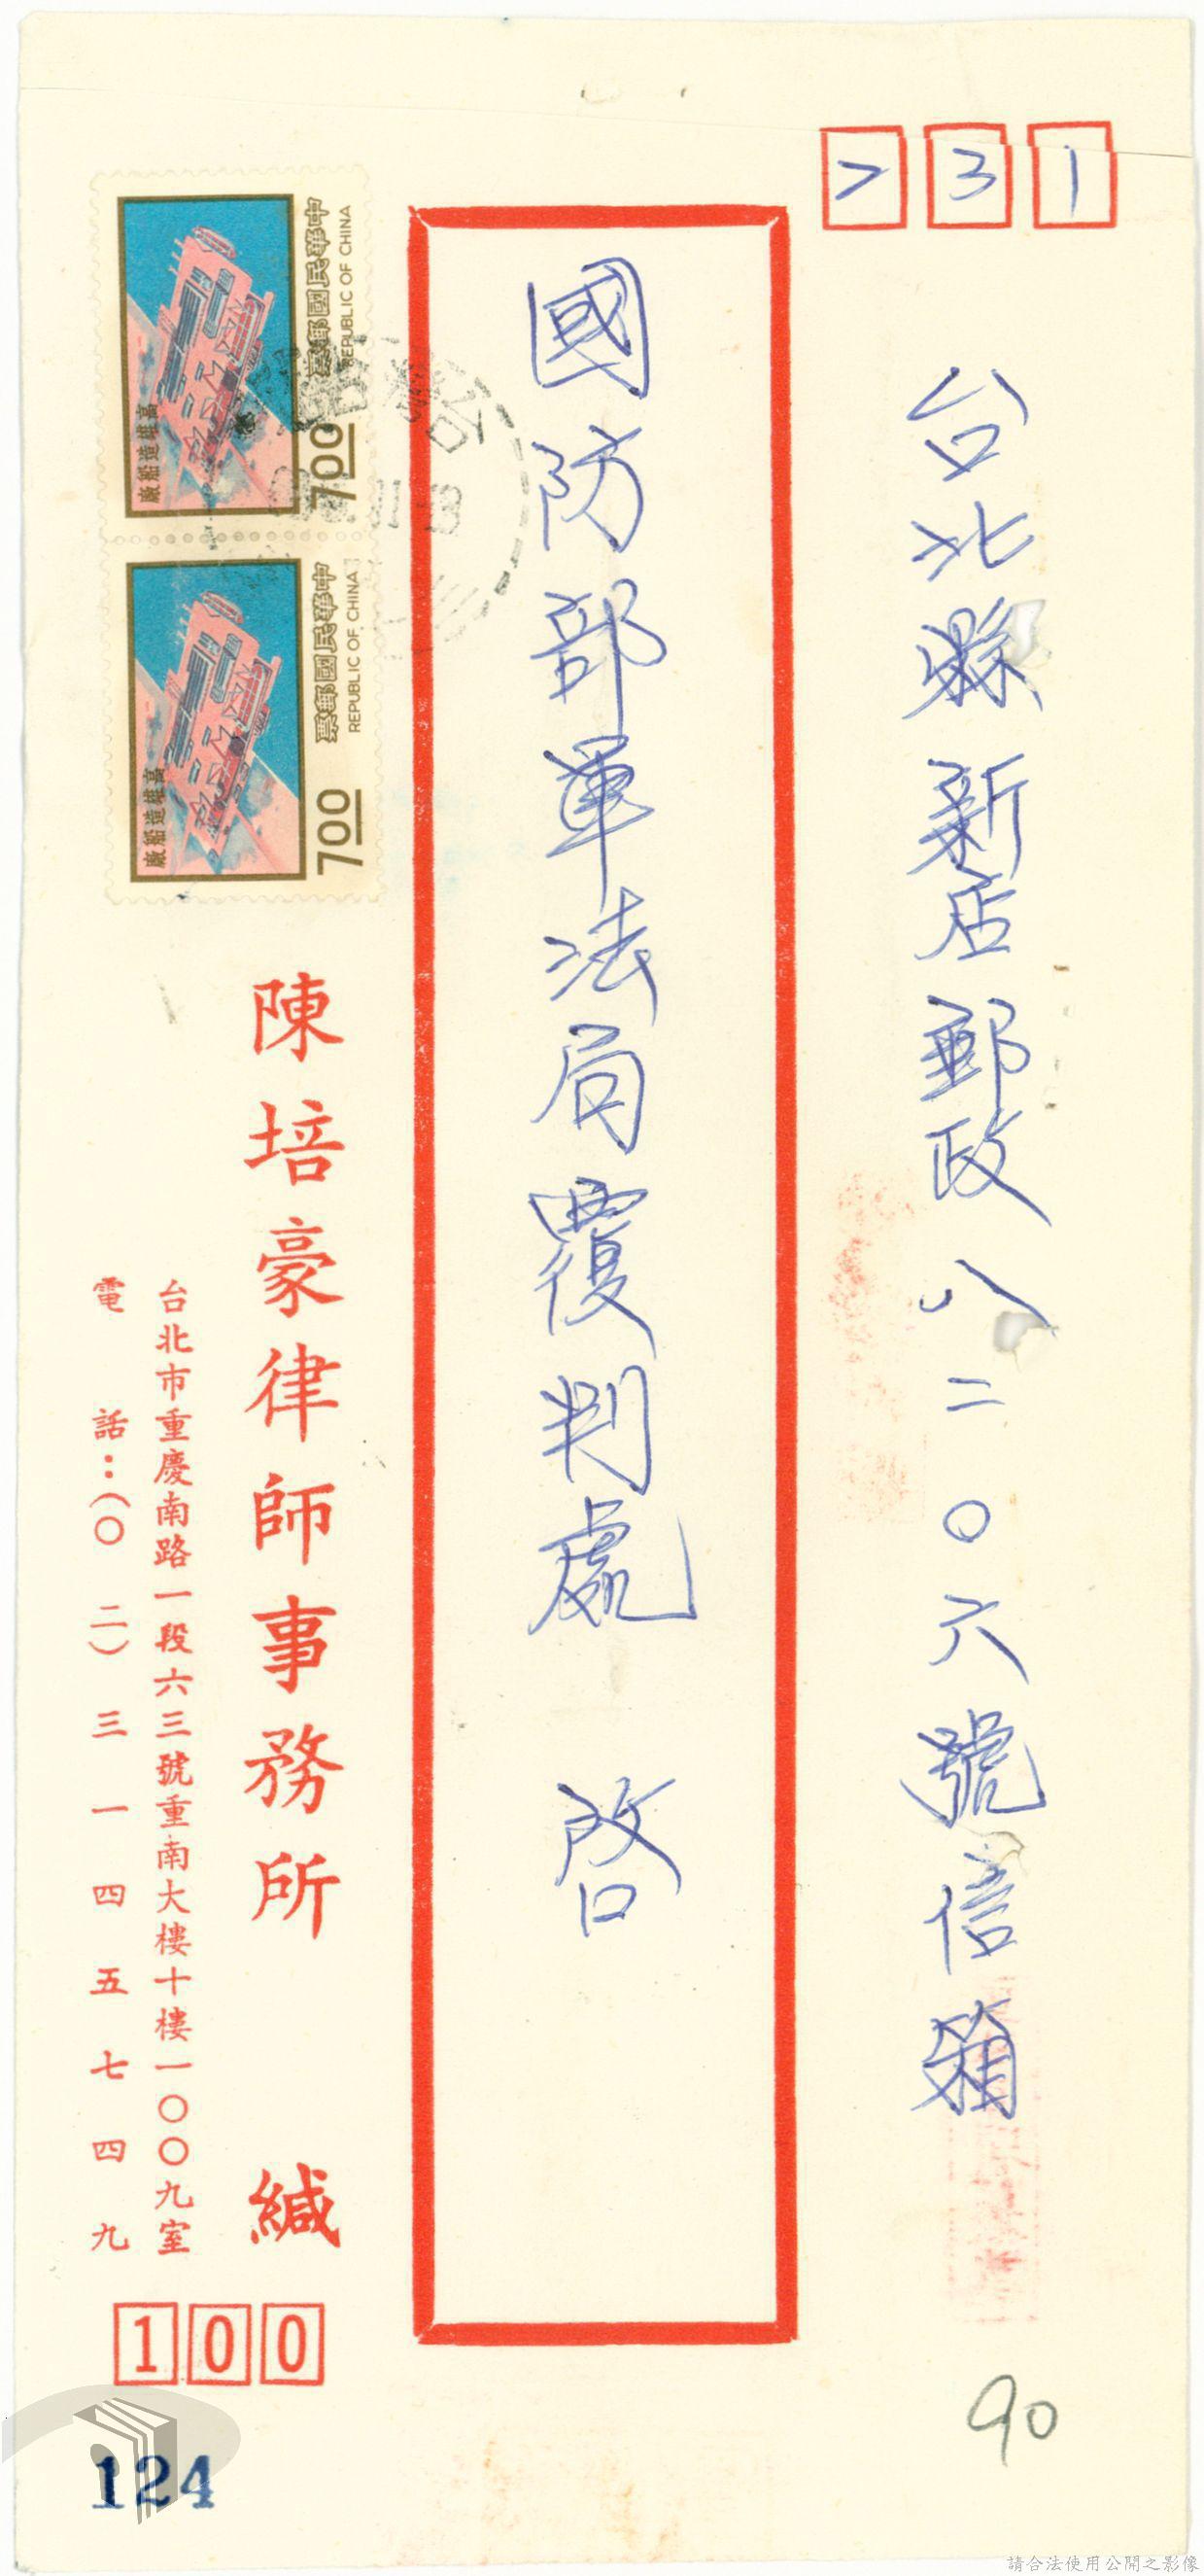 231
台北縣新店郵政八二〇六號信箱
國防部軍法局覆判處 啓
中華民國郵票
REPUBLIC OF CHINA
7.00
高雄造船廠
中華民國郵票
REPUBLIC OF CHINA
7.00
高雄造船廠
陳培豪律師事務所 緘
台北市重慶南路一段六三號重南大樓十樓一〇〇九室
電話：（〇二）三一四五七四九
100
90
124
請合法使用公開之影像